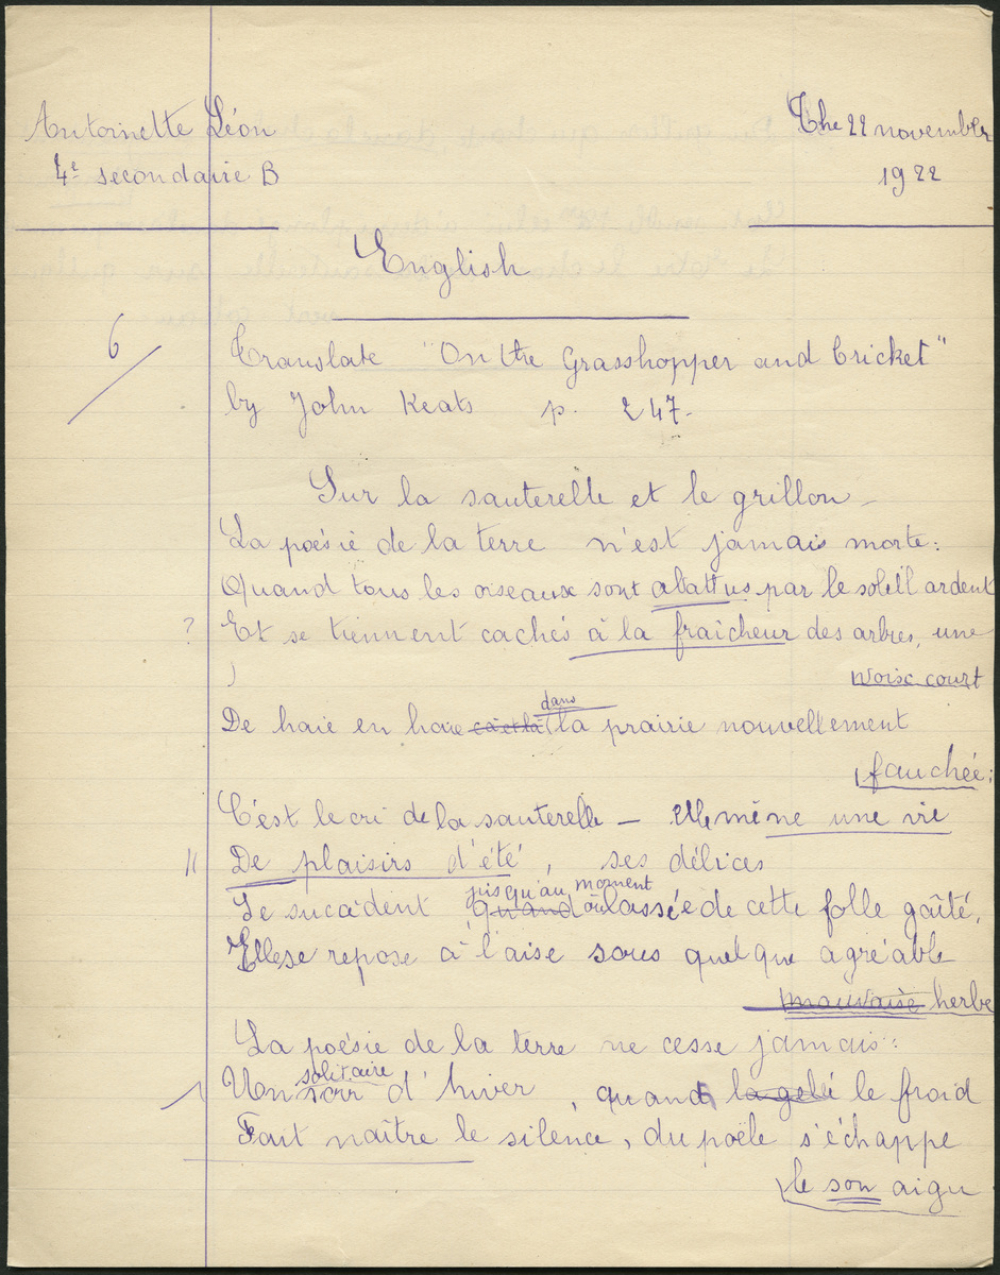 Antoinette Léon
The 22 november
4e secondaire B
1922
English
6
Translate "On the Grasshopper and Cricket"
by John Keats p. 247.
Sur la sauterelle et le grillon
La poésie de la terre n'est jamais morte:
Quand tous les oiseaux sont abattus par le soleil ardent
? Et se tiennent cachés à la fraîcheur des arbres, une
voix court
dans
De haie en haie la prairie nouvellement
fauchée;
C'est le cri de la sauterelle — Elle mène une vie
De plaisirs d'été, ses délices
jusqu'au moment
Se succèdent quand où lassée de cette folle gaîté,
Elle se repose à l'aise sous quelque agréable
mauvaise herbe
La poésie de la terre ne cesse jamais:
solitaire
Un soir d'hiver, quand la gelé le froid
Fait naître le silence, du poële s'échappe
le son aigu